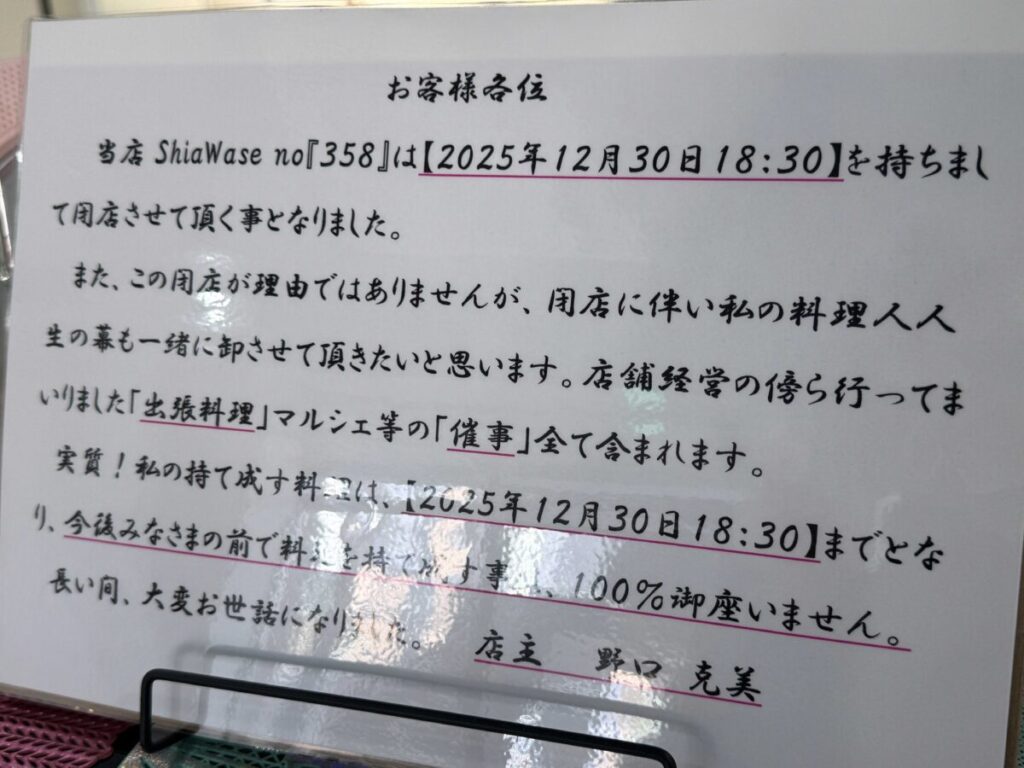 お客様各位
当店 ShiaWase no『358』は【2025年12月30日18:30】を持ちまし
て閉店させて頂く事となりました。
また、この閉店が理由ではありませんが、閉店に伴い私の料理人人
生の幕も一緒に卸させて頂きたいと思います。店舗経営の傍ら行ってま
いりました「出張料理」マルシェ等の「催事」全て含まれます。
実質！私の持て成す料理は、【2025年12月30日18:30】までとな
り、今後みなさまの前で料理を持て成す事、100%御座いません。
長い間、大変お世話になりました。
店主 野口 克美